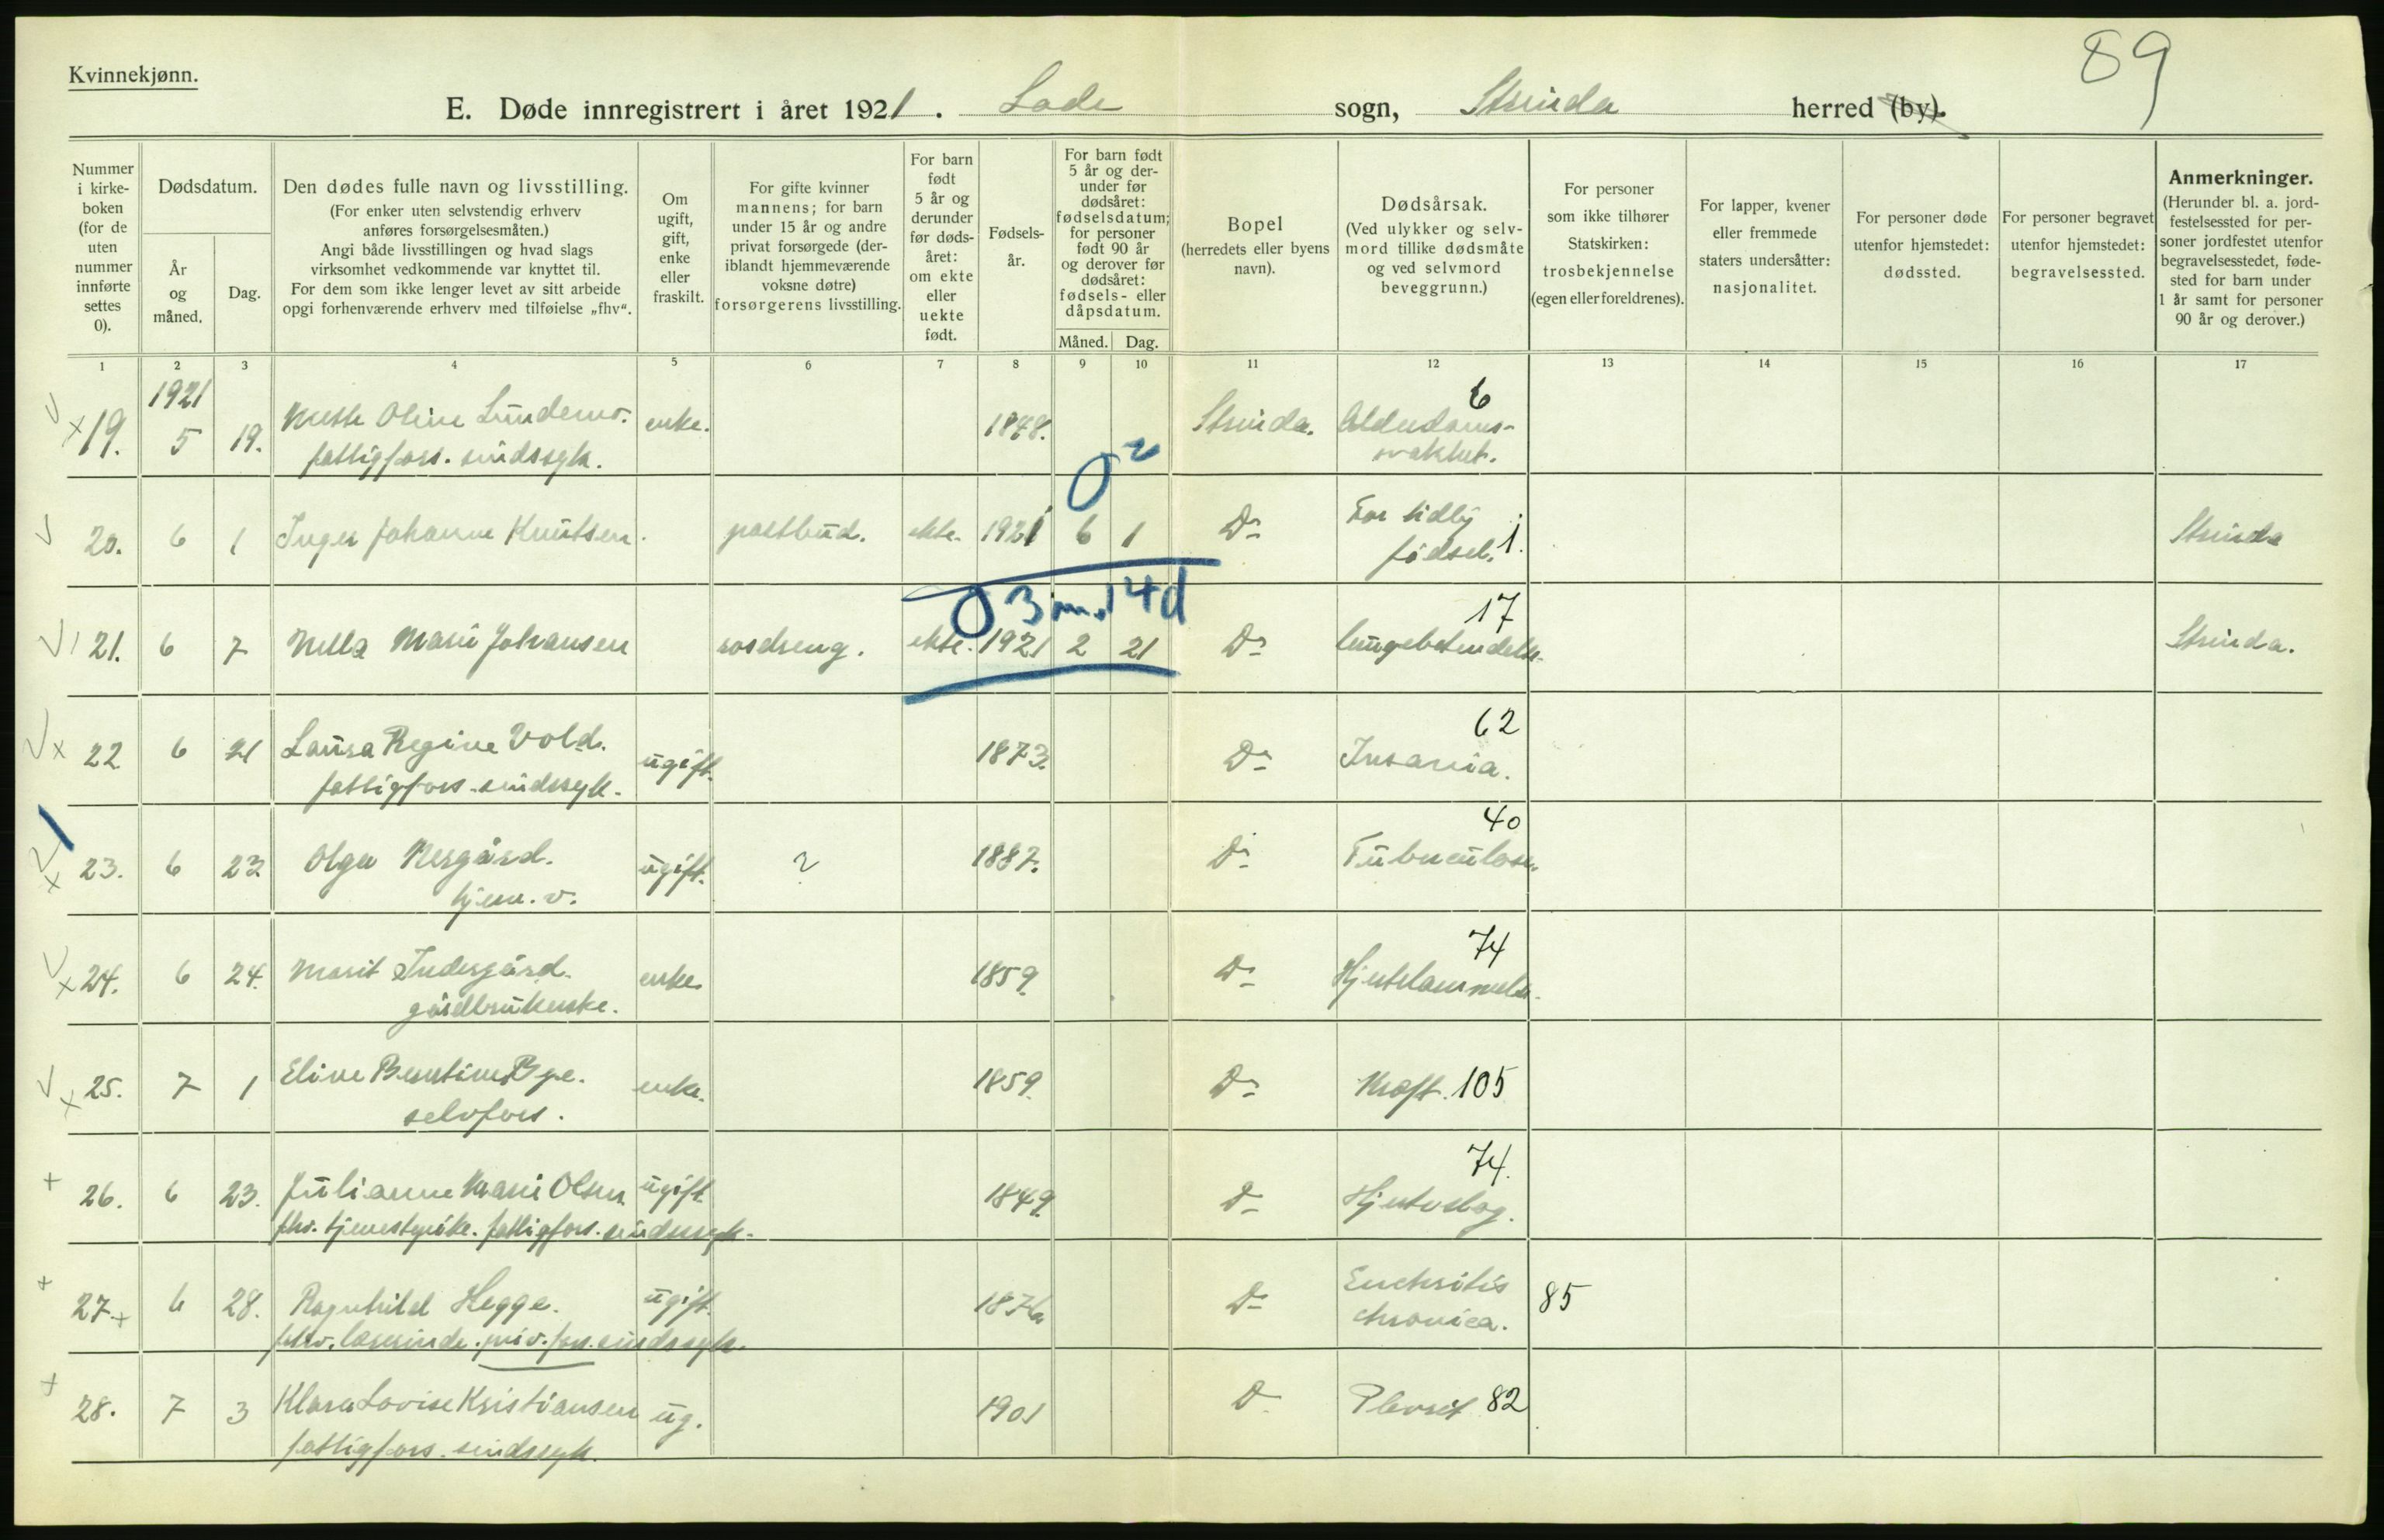 89
Kvinnekjønn.
E. Døde innregistrert i året 1921. Lade sogn, Strinda herred (by).
Nummer i kirke-boken (for de uten nummer innførte settes 0).
Dødsdatum.
År og måned.
Dag.
Den dødes fulle navn og livsstilling.
(For enker uten selvstendig erhverv anføres forsørgelsesmåten.)
Angi både livsstillingen og hvad slags virksomhet vedkommende var knyttet til.
For dem som ikke lenger levet av sitt arbeide opgi forhenværende erhverv med tilføielse „fhv“.
Om ugift, gift, enke eller fraskilt.
For gifte kvinner mannens; for barn under 15 år og andre privat forsørgede (der-iblandt hjemmeværende voksne døtre) forsørgerens livsstilling.
For barn født 5 år og derunder før døds-året: om ekte eller uekte født.
Fødsels-år.
For barn født 5 år og der-under før dødsåret: fødselsdatum; for personer født 90 år og derover før dødsåret: fødsels- eller dåpsdatum.
Måned. Dag.
Bopel (herredets eller byens navn).
Dødsårsak.
(Ved ulykker og selv-mord tillike dødsmåte og ved selvmord beveggrunn.)
For personer som ikke tilhører Statskirken: trosbekjennelse (egen eller foreldrenes).
For lapper, kvener eller fremmede staters undersåtter: nasjonalitet.
For personer døde utenfor hjemstedet: dødssted.
For personer begravet utenfor hjemstedet: begravelsessted.
Anmerkninger.
(Herunder bl. a. jord-festelsessted for per-soner jordfestet utenfor begravelsesstedet, føde-sted for barn under 1 år samt for personer 90 år og derover.)
1 2 3 4 5 6 7 8 9 10 11 12 13 14 15 16 17
1921 6
19. 5 19. Oline enke. 1848. Strinda. Alderdoms-
fattigfors. sindssyk. svakhet.
0
20. 6 1 Inger Johanne Knutsen. postbud. ekte. 1921 6 1 Do For tidlig Strinda
fødsel. 1.
0 3 m. 14 d 17
21. 6 7 Nella Marie Johansen ekte. 1921 2 21 Do lungebetendelse. Strinda.
62
22 6 21 Laura Regine Vold. ugift. 1873. Do Insania.
fattigfors. sindssyk.
40
23. 6 23 Olga Nesgård. ugift. ? 1887. Do Tuberculose.
tjen. v.
74
24. 6 24. Marit Indergård. enke. 1859. Do Hjertelammelse.
gårdbrukerske.
25. 7 1 Eline Bye. enke. 1859. Do Kræft. 105
selvfors.
74.
26. 6 23. Julianne Marie Olsen ugift. 1849. Do Hjerteslag.
fhv. tjenestepike. fattigfors. sindssyk.
27. 6 28. Ragnhild Hegge. ugift. 1876 Do chronica. 85
fhv. lærerinde. priv. fors. sindssyk.
28. 7 3 Klara Lovise Kristiansen ug. 1901 Do Plevrit 82
fattigfors. sindssyk.